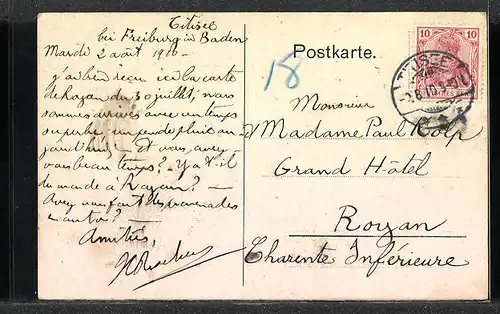 Titisee
bei Freiburg in Baden
Mardi 2 août 1910 -
j'ai bien reçu ici la carte
de Royan du 30 juillet, nous
sommes arrivés avec un temps
superbe, un peu de pluie au-
jourd'hui. Et vous, avez
vous beau temps? - Y a-t-il
du monde à Royan? -
Avez vous fait des promenades
en auto? -
Amitiés,
Postkarte.
18
10
TITISEE
2.8.10
Monsieur
Madame Paul
Grand Hôtel
Royan
Charente Inférieure